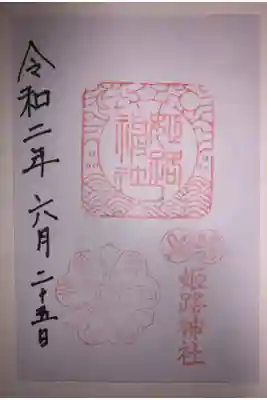 令和二年 六月 二十五日
姫路
神社
姫路神社